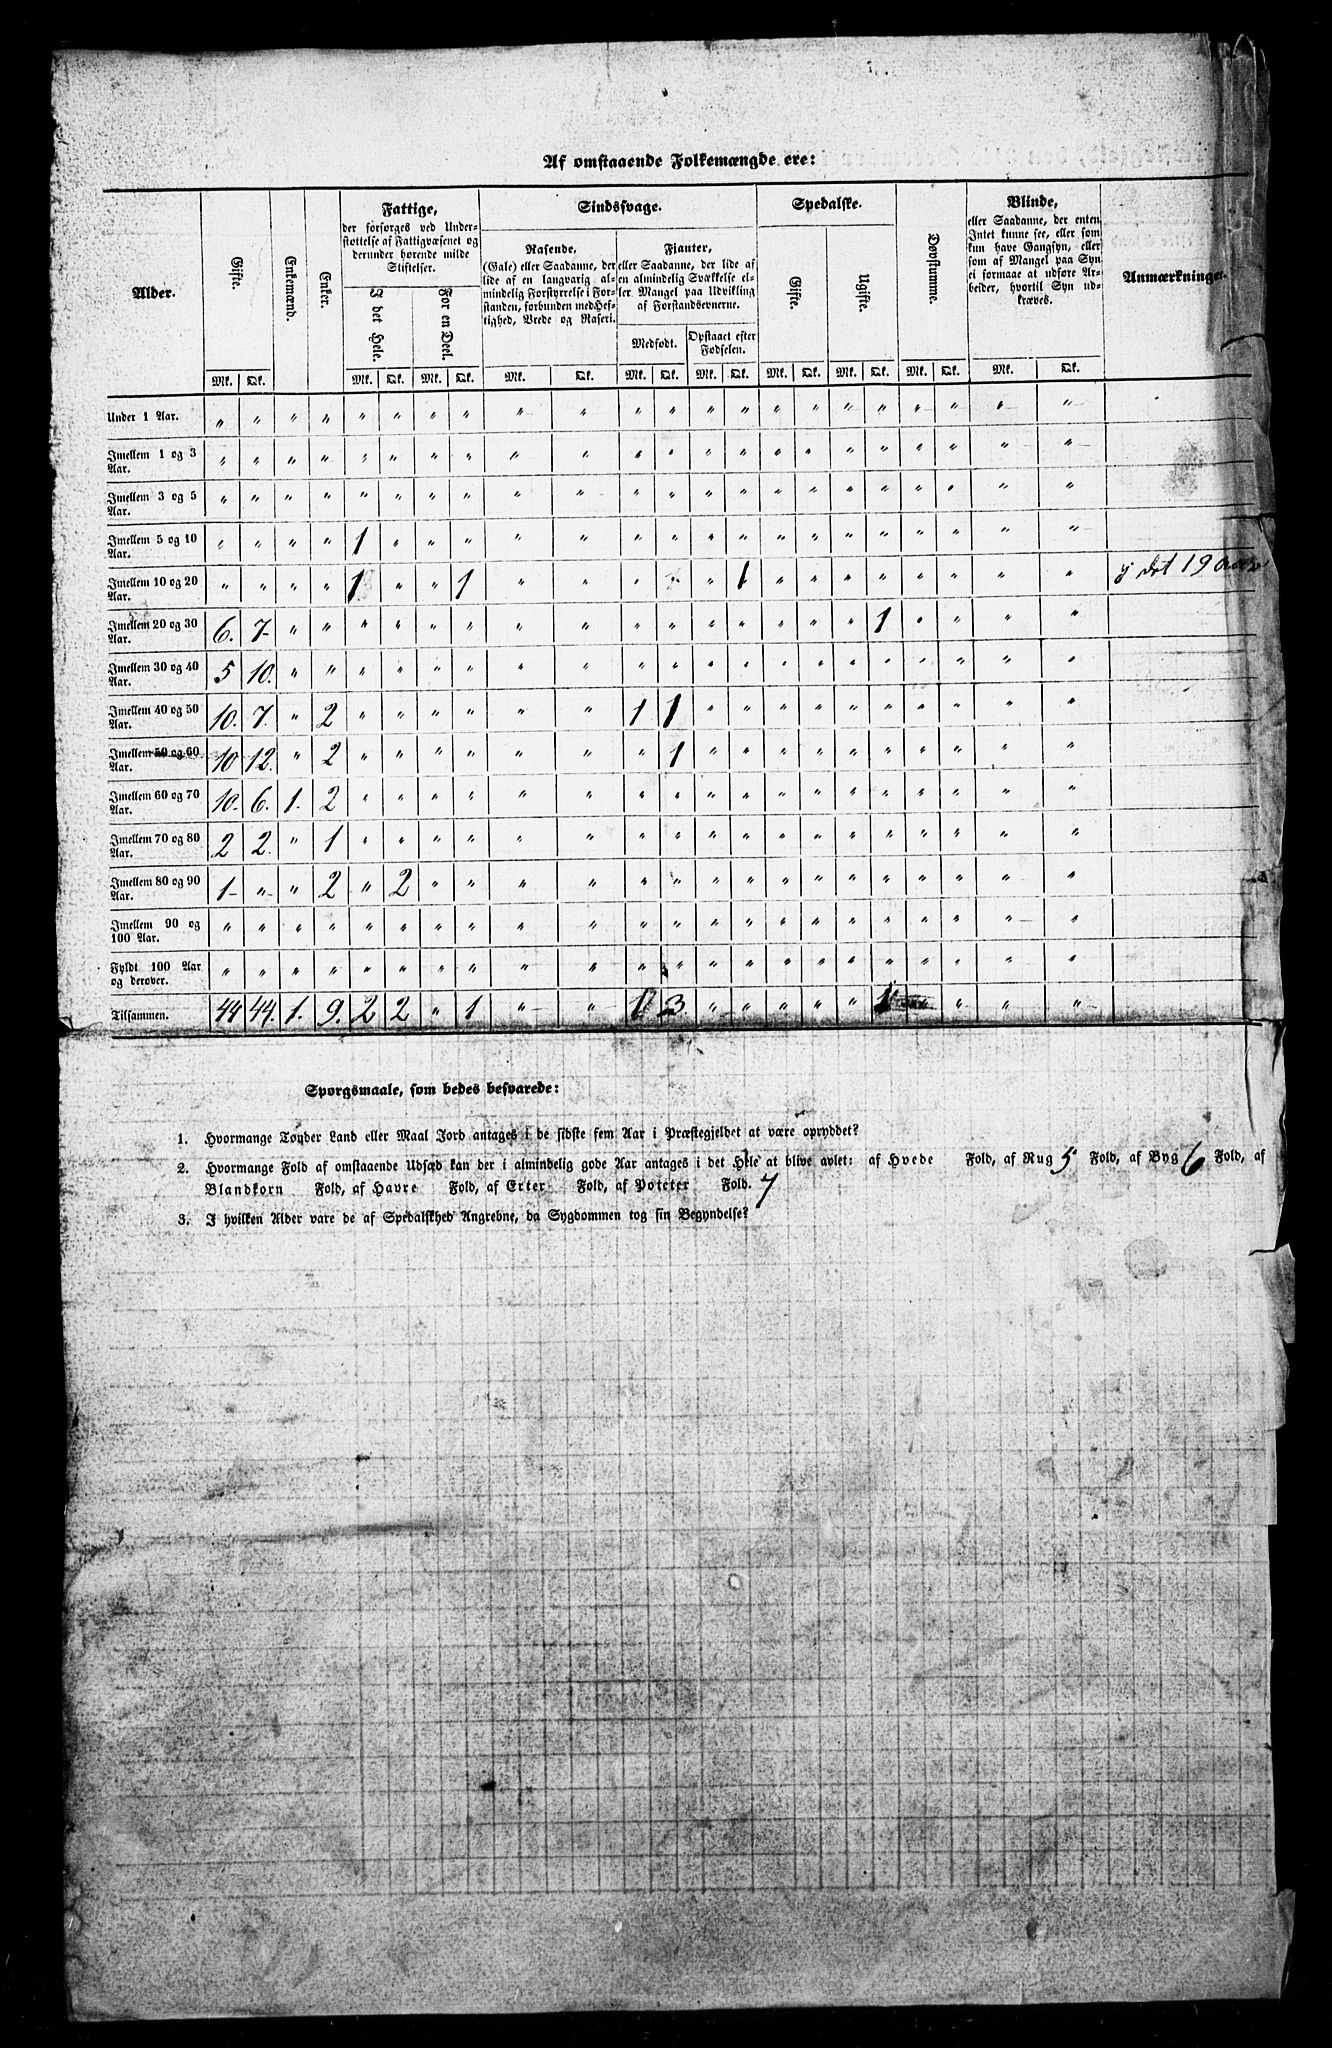 Af omstaaende Folkemængde ere:
Alder. Gifte. Enkemænd. Enker. Fattige, der forsørges ved Understøttelse af Fattigvæsenet og derunder hørende milde Stiftelser. Sindssvage. Spedalske. Døvstumme. Blinde, eller Saadanne, der enten Intet kunne see, eller som kun have Gangsyn, eller som af Mangel paa Syn ei formaae at udføre Arbeider, hvortil Syn udkræves. Anmærkninger.
I det Hele. For en Deel. Rasende, (Gale) eller Saadanne, der lide af en langvarig almindelig Forstyrrelse i Forstanden, forbunden med Heftighed, Vrede og Raseri. Fjanter, eller Saadanne, der lide af en almindelig Svækkelse eller Mangel paa Udvikling af Forstandsevnerne. Gifte. Ugifte.
Medfødt. Opstaaet efter Fødselen.
Mk. Qk. Mk. Qk. Mk. Qk. Mk. Qk. Mk. Qk. Mk. Qk. Mk. Qk. Mk. Qk. Mk. Qk. Mk. Qk.
Under 1 Aar. " " " " " " " " " " " " " " " " " " " " " "
Imellem 1 og 3 Aar. " " " " " " " " " " " " " " " " " " " " " "
Imellem 3 og 5 Aar. " " " " " " " " " " " " " " " " " " " " " "
Imellem 5 og 10 Aar. " " " " 1 " " " " " " " " " " " " " " " " "
Imellem 10 og 20 Aar. " " " " 1 " " 1 " " " " " 1 " " " " " " " " i det 19
Imellem 20 og 30 Aar. 6. 7 " " " " " " " " " " " " " " " 1 " " " "
Imellem 30 og 40 Aar. 5 10. " " " " " " " " " " " " " " " " " " " "
Imellem 40 og 50 Aar. 10. 7. " 2 " " " " " " 1 1 " " " " " " " " " "
Imellem 50 og 60 Aar. 10 12. " 2 " " " " " " " 1 " " " " " " " " " "
Imellem 60 og 70 Aar. 10. 6. 1. 2 " " " " " " " " " " " " " " " " " "
Imellem 70 og 80 Aar. 2 2. " 1 " " " " " " " " " " " " " " " " " "
Imellem 80 og 90 Aar. 1 " " 2 " 2 " " " " " " " " " " " " " " " "
Imellem 90 og 100 Aar. " " " " " " " " " " " " " " " " " " " " " "
Fyldt 100 Aar og derover. " " " " " " " " " " " " " " " " " " " " " "
Tilsammen. 44 44. 1. 9. 2 2 " 1 " " 1 3 " " " " " 1 " " "
Spørgsmaale, som bedes besvarede:
1. Hvormange Tønder Land eller Maal Jord antages i de sidste fem Aar i Præstegjeldet at være opryddet?
2. Hvormange Fold af omstaaende Udsæd kan der i almindelig gode Aar antages i det Hele at blive avlet: af Hvede Fold, af Rug 5 Fold, af Byg 6 Fold, af
Blandkorn Fold, af Havre Fold, af Erter Fold, af Poteter Fold. 7
3. I hvilken Alder vare de af Spedalskhed Angrebne, da Sygdommen tog sin Begyndelse?